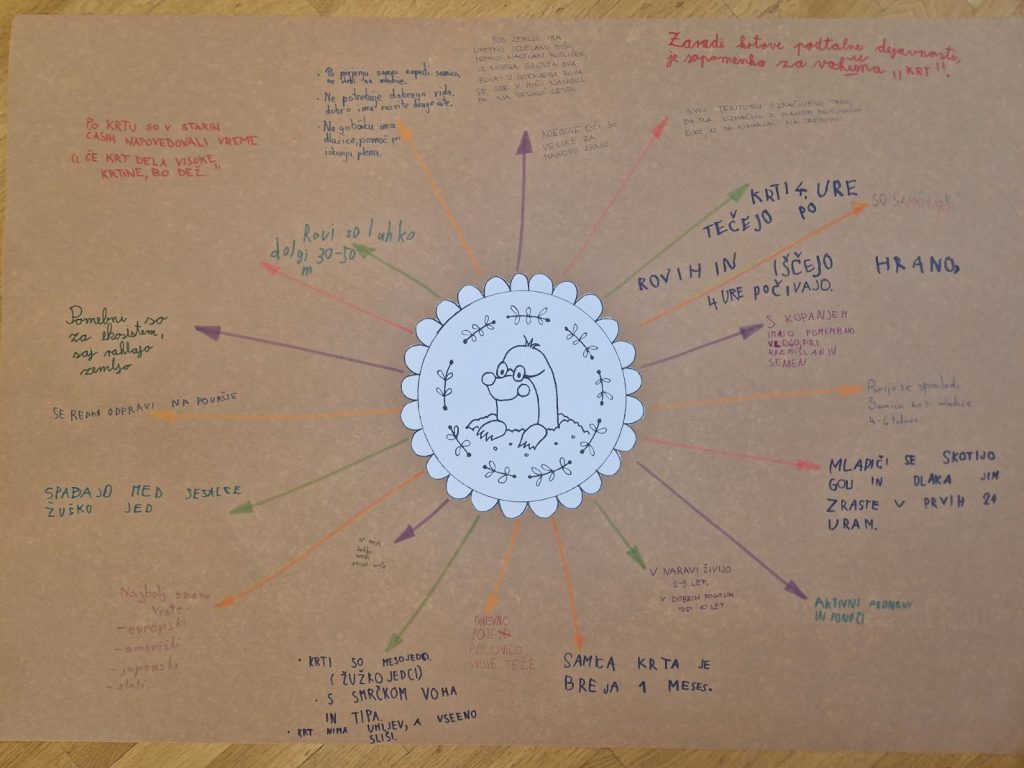 POD ZEMLJO IMA
UMETNO IZDELANO HIŠO,
MEHKO NASTLAN KOTLIČEK,
IZ NJEGA GRESTA DVA
ROVA. IZ GORNJEGA ROVA
SE GRE V HIŠO NAVZDOL,
PA NA VELIKO CESTO.
Zaradi krtove podtalne dejavnosti,
je sopomenka za vohuna „KRT"!
• Po parjenju samec zapusti samico,
ne skrbi za mladiče.
• Ne potrebuje dobrega vida,
dobro ima razvite druge čute.
• Na gobčku ima
dlačice, pomoč pri
iskanju plena.
NJEGOVE OČI SO
VELIKE ZA
MAKOVO ZRNO.
SVOJ TERITORIJ OZNAČUJEJO TAKO,
DA TLA OZNAČIJO Z VONJEM
ŽLEZ, KI SE NAHAJAJO NA TREBUHU.
PO KRTU SO V STARIH
ČASIH NAPOVEDOVALI VREME
„ČE KRT DELA VISOKE
KRTINE, BO DEŽ."
KRTI 4 URE
TEČEJO PO
ROVIH IN IŠČEJO HRANO,
4 URE POČIVAJO.
SO SAMOTARJI
Rovi so lahko
dolgi 30-50
m
Pomebni so
za ekosistem,
saj rahlajo
zemljo
S KOPANJEM
IMAJO POMEMBNO
VLOGO, PRI
RAZMIŠLANJU
SEMEN
SE REDKO ODPRAVI NA POVRŠJE
Parijo se spomladi.
Samica koti mladiče
4-6 tednov
SPADAJO MED SESALCE
ŽUŠKO JED
MLADIČI SE SKOTIJO
GOLI IN DLAKA JIM
ZRASTE V PRVIH 24
URAH.
V NARAVI ŽIVIJO
2-5 LET,
V DOBRIH POGOJIH
TUDI 10 LET
AKTIVNI PODNEVI
IN PONOČI
Najbolj znane
vrste:
- evropski
- ameriški
- japonski
- zlati
DNEVNO
POJEJO
POLOVICO
SVOJE TEŽE
SAMICA KRTA JE
BREJA 1 MESES.
• KRTI SO MESOJEDCI.
(ŽUŽKOJEDCI)
• S SMRČKOM VOHA
IN TIPA.
• KRT NIMA UHLJEV, A VSEENO
SLIŠI.